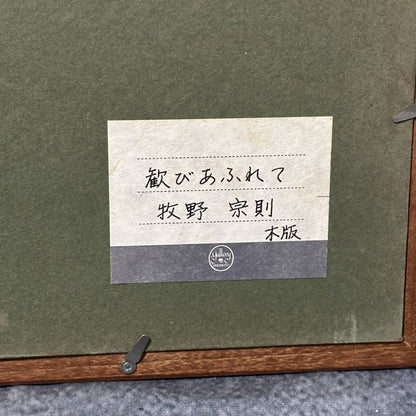 歓びあふれて
牧野 宗則
木版
Gallery